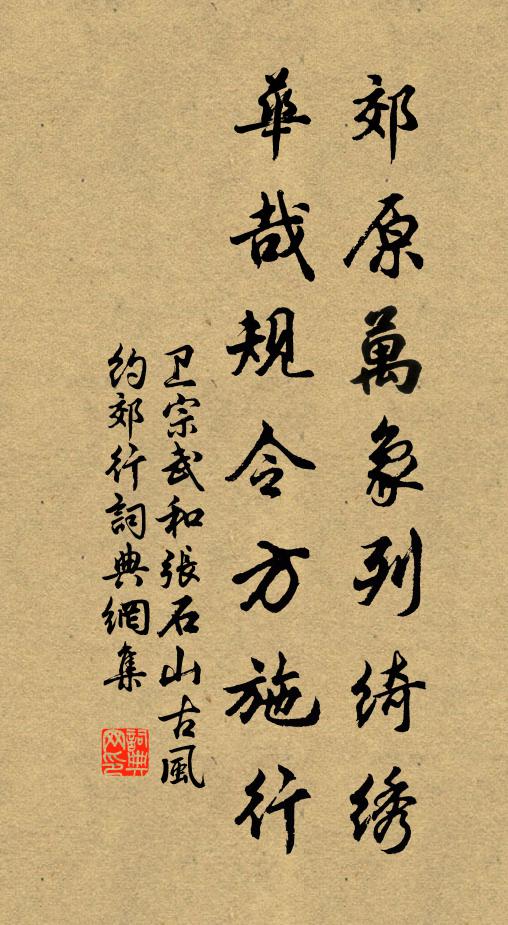 郊原萬象列绮绣
華哉規令方施行
卫宗武和張石山古風
約郊行詞典網集
詞典网印